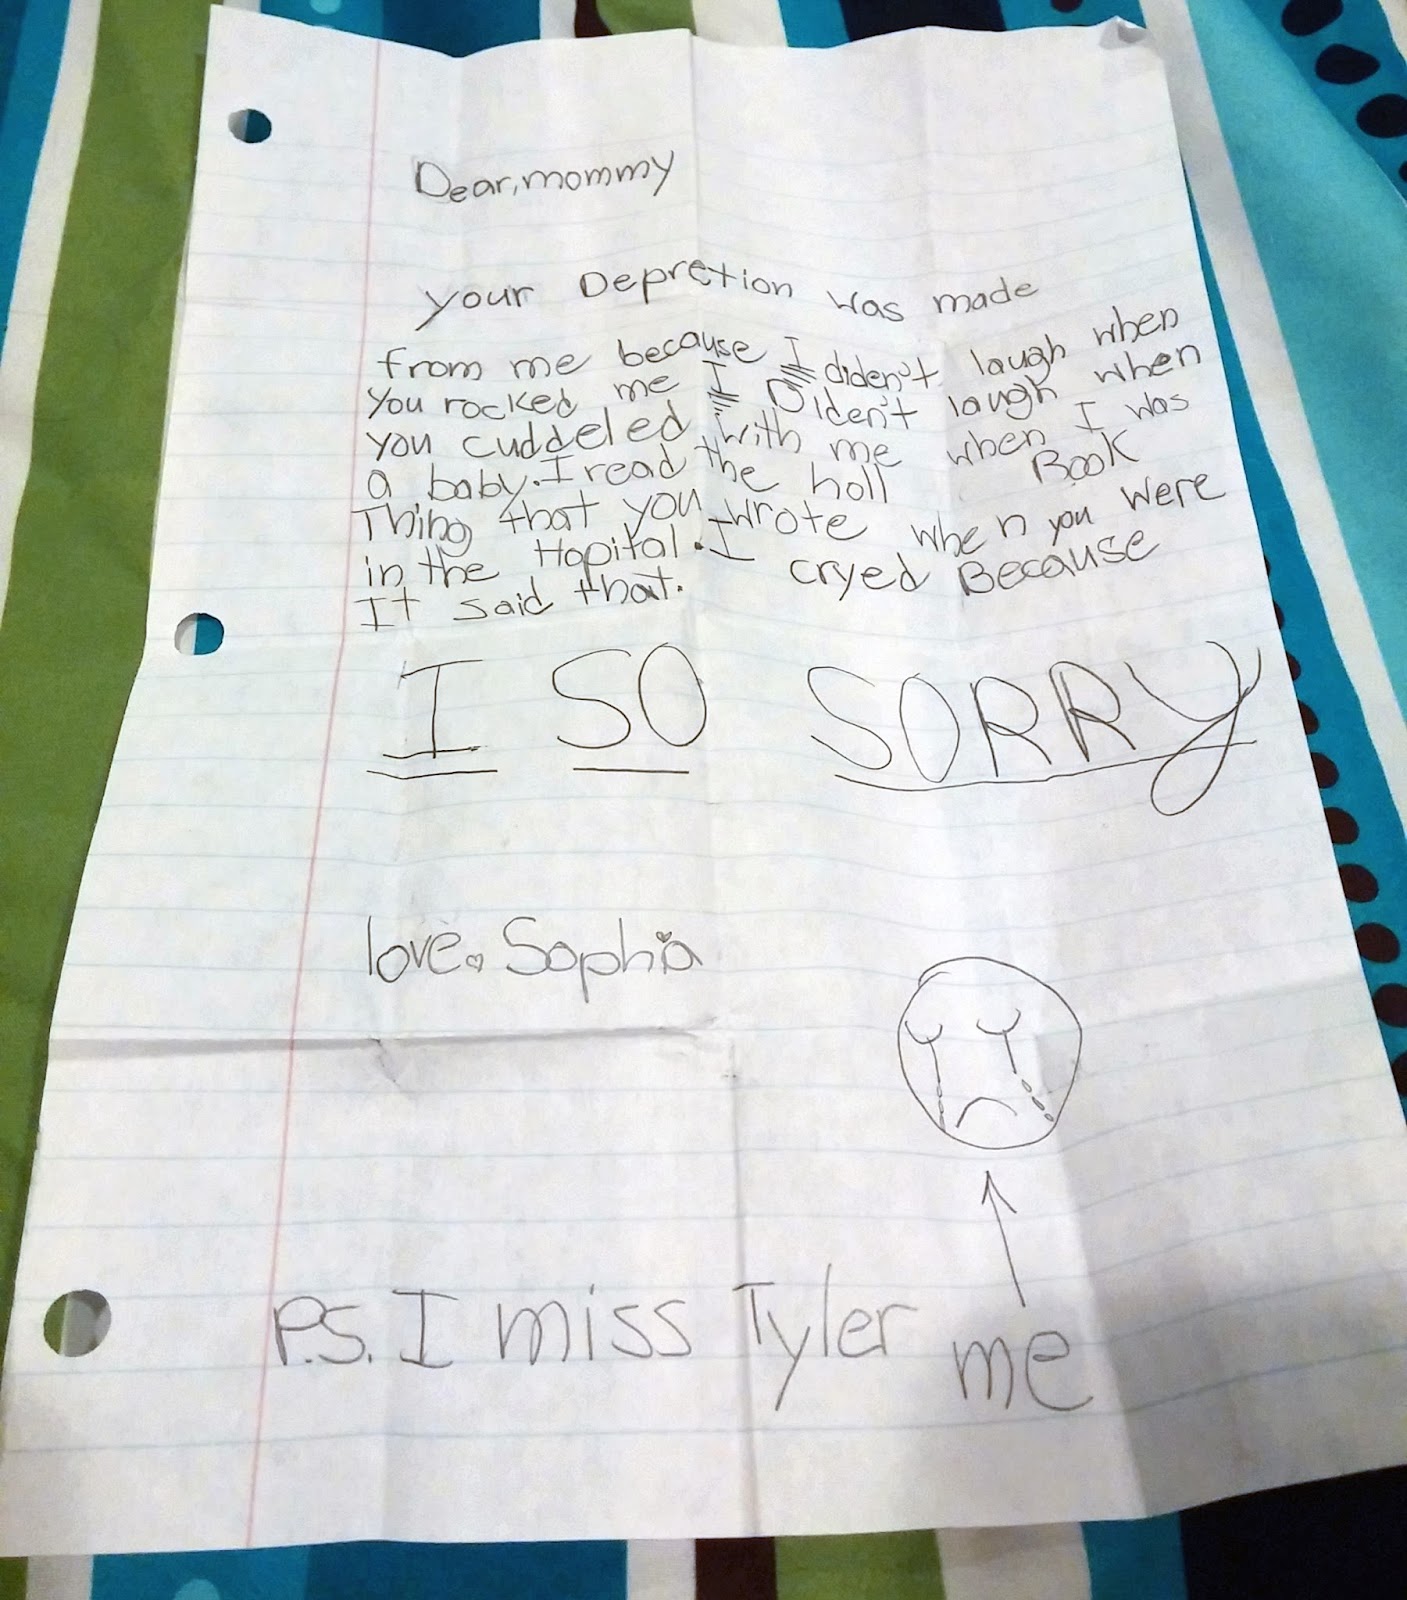 Dear, mommy
your Depretion was made
from me because I diden't laugh when
you rocked me I Diden't laugh when
you cuddeled with me when I was
a baby. I read the holl Book
Thing that you wrote when you were
in the Hopital. I cryed Because
It said that.
I SO SORRY
love. Sophia
P.S. I miss Tyler
me